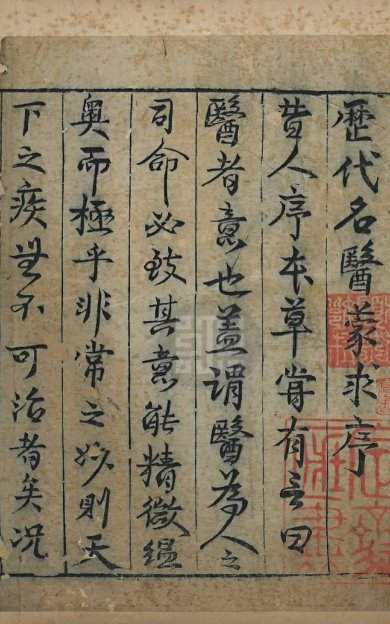 歷代名醫蒙求序
昔人序本草嘗有言曰
醫者意也蓋謂醫為人之
司命必致其意能精微縕
奧而極乎非常之妙則天
下之疾無不可治者矣况